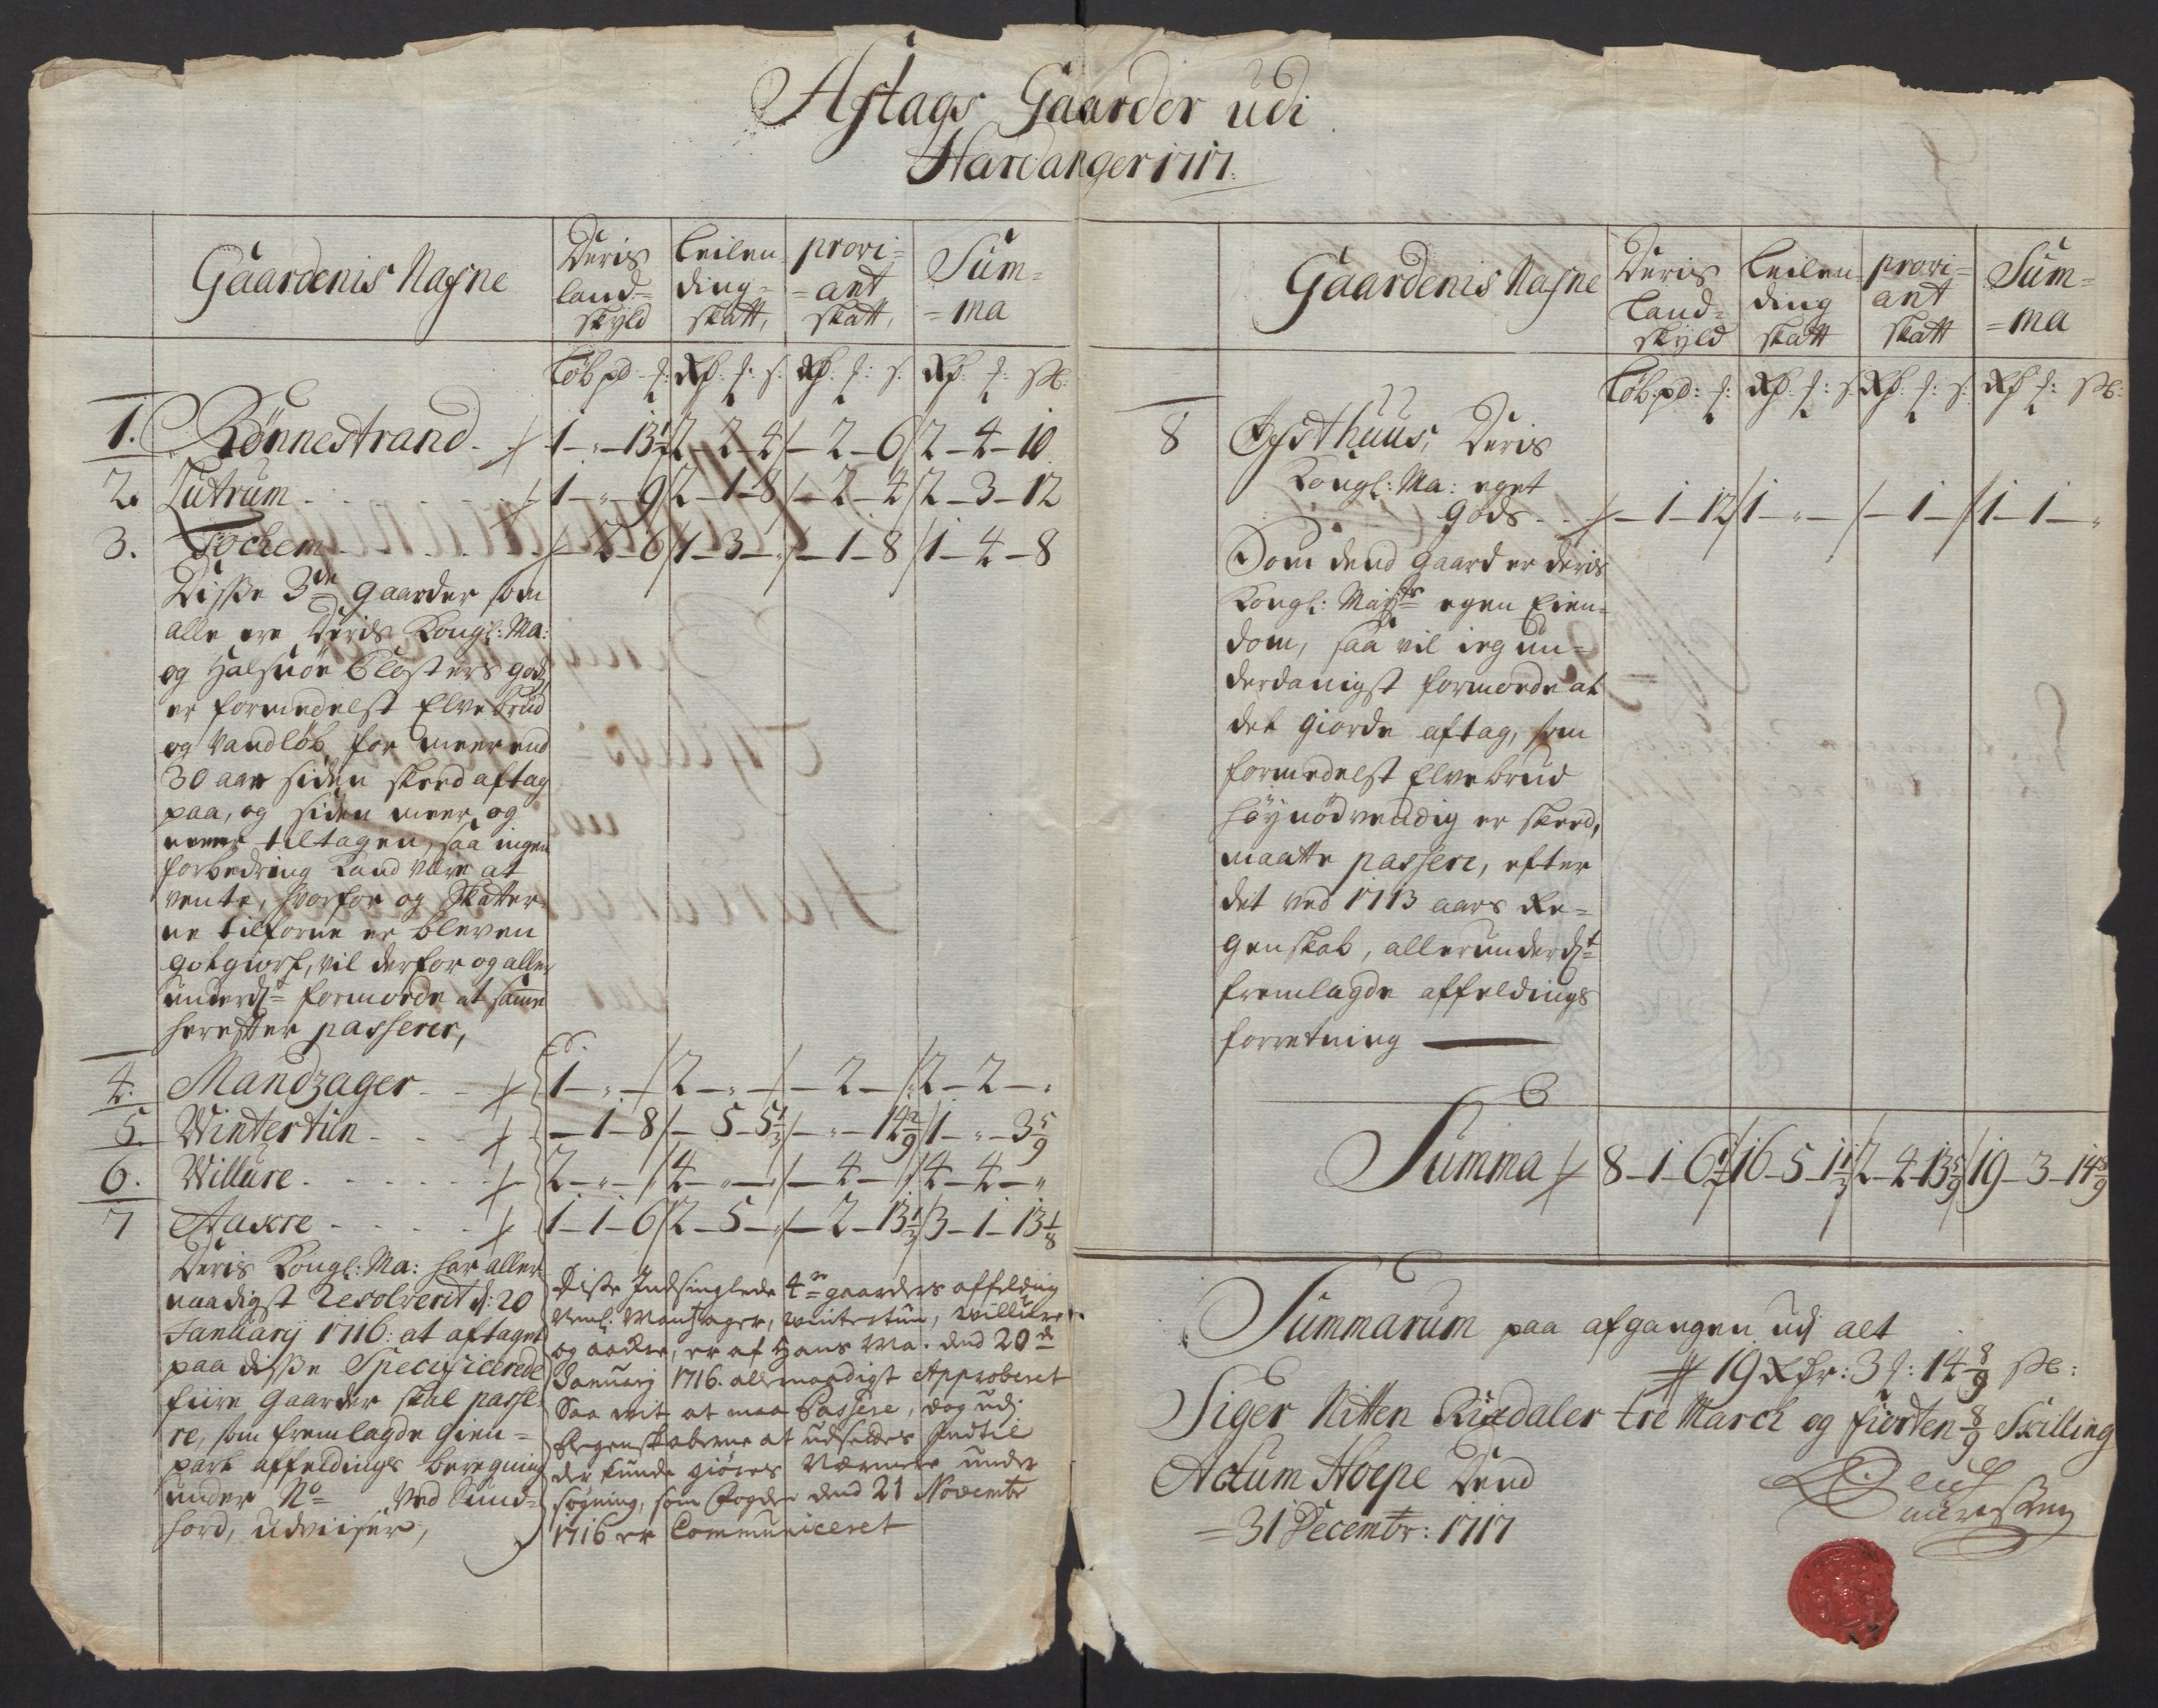 Aftags Gaarder udi
Hardanger 1717.
Gaardenis Nafne
Deris
land=
skyld
Leilen
ding=
skatt,
provi=
=ant
skatt,
Sum=
=ma
Løb pd
1. Rønnestrand 1 - " - 13½ 2 - 2 - 4 - 2 - 6 2 - 4 - 10
2. Lutrum 1 - " - 9 2 - 1 - 8 - 2 - 4 2 - 3 - 12
3. Tochem - 2 - 6 1 - 3 - " - 1 - 8 1 - 4 - 8
Disse 3de gaarder som
alle ere Deris Kongl: Ma:
og Halsnöe Closters gods
er formedelst Elvebrud
og Vandløb for meer end
30 aar siden skeed aftag
paa, og siden meer og
meer tiltagen, saa ingen
forbedring kand være at
vente, hvorfor og Skatter=
ne tilforne er bleven
gotgiort, vil derfor og aller
underdt formode at samme
herefter passerer,
4. Mandzager 1 - " - 2 - " - - 2 - 2 - 2 - "
5. Wintertun - 1 - 8 - 5 - 5⅓ - " - 14 2/9 1 - " - 3 5/9
6. Willure 2 - " - " 4 - " - " - 4 - " 4 - 4 - "
7 Aakre 1 - 1 - 6 2 - 5 - " - 2 - 13⅓ 3 - 1 - 13⅓
Deris Kongl: Ma: har aller
naadigst Resolverit d: 20
January 1716: at aftaget
paa disse Specificerede
fiire gaarder skal passe=
re, som fremlagde Gien=
part affeldings beregning
under No Ved Sund=
hord, udviiser,
Diste Indsinglede 4re gaarders affelding
Neml: Mandzager, wintertun, willure
og aakre, er af Hans Ma: dend 20de
January 1716. allernaadigst Approberet
Saa vit at maa Passere, dog udj
Regenskaberne at udføldes Indtil
der kunde giøres Nærmere under
søgning, som fogden dend 21 Novembr
1716 er Communiceret
Gaardenis Nafne
Deris
Land=
skyld
Leilen=
ding
skatt
provi=
ant
skatt
Sum=
=ma
Løb. pd:
8 Øysthuus, Deris
Kongl: Ma: eget
gods - 1 - 12 1 - " - - 1 - 1 - 1 - "
Som dend gaard er deris
Kongl: Mayts egen Eien=
dom, saa vil ieg un=
derdanigst formode at
det giorde aftag, som
formedelst Elvebrud
høynødvendig er skeed,
maatte passere, efter
det ved 1713 aars Re=
genskab, allerunderdt
fremlagde affeldings
forretning
Summa 8 - 1 - 6½ 16 - 5 - 1⅓ 2 - 4 - 13 5/9 19 - 3 - 14 8/9
Summarum paa afgangen udj alt
19 Rdr: 3 : 14 8/9 s:
Siger Nitten Rixdaler tre March og fiorten 8/9 Skilling
Actum Hoepe Dend
=31 Decembr: 1717